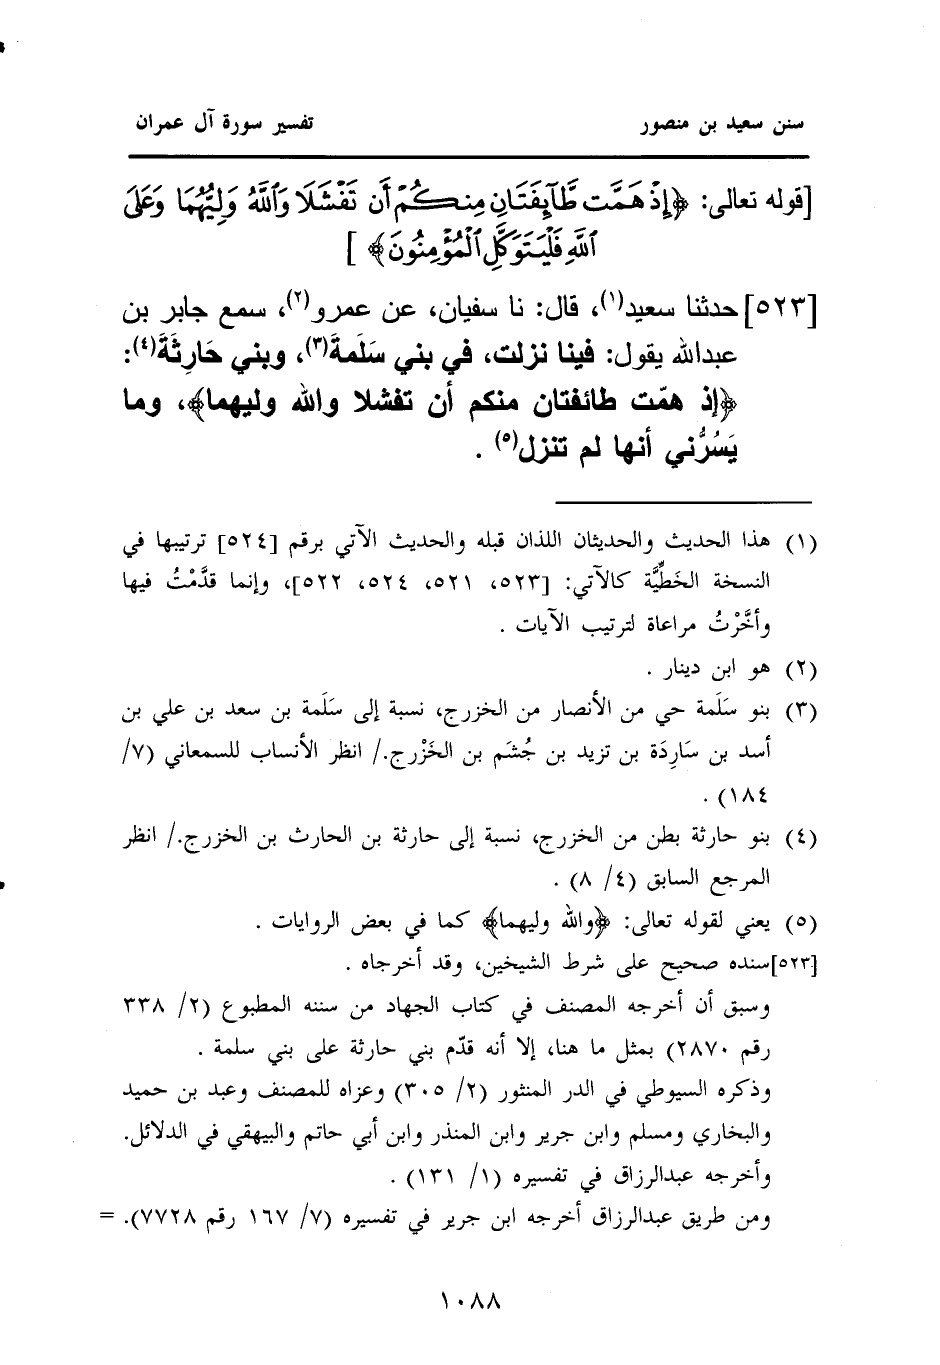 سنن سعيد بن منصور تفسير سورة آل عمران
[قوله تعالى: ﴿إِذْ هَمَّت طَّآئِفَتَانِ مِنكُمْ أَن تَفْشَلَا وَٱللَّهُ وَلِيُّهُمَا وَعَلَى
ٱللَّهِ فَلْيَتَوَكَّلِ ٱلْمُؤْمِنُونَ﴾ ]
[٥٢٣] حدثنا سعيد(١)، قال: نا سفيان، عن عمرو(٢)، سمع جابر بن
عبدالله يقول: فينا نزلت، في بني سَلَمةَ(٣)، وبني حَارِثَةَ(٤):
﴿إذ همّت طائفتان منكم أن تفشلا والله وليهما﴾، وما
يَسُرُّني أنها لم تنزل(٥) .
(١) هذا الحديث والحديثان اللذان قبله والحديث الآتي برقم [٥٢٤] ترتيبها في
النسخة الخَطِّيَّة كالآتي: [٥٢٣، ٥٢١، ٥٢٤، ٥٢٢]، وإنما قدَّمْتُ فيها
وأخَّرْتُ مراعاة لترتيب الآيات .
(٢) هو ابن دينار .
(٣) بنو سَلَمة حي من الأنصار من الخزرج، نسبة إلى سَلَمة بن سعد بن علي بن
أسد بن سَارِدَة بن تزيد بن جُشَم بن الخَزْرج./ انظر الأنساب للسمعاني (٧/
١٨٤) .
(٤) بنو حارثة بطن من الخزرج، نسبة إلى حارثة بن الحارث بن الخزرج./ انظر
المرجع السابق (٤/ ٨) .
(٥) يعني لقوله تعالى: ﴿والله وليهما﴾ كما في بعض الروايات .
[٥٢٣] سنده صحيح على شرط الشيخين، وقد أخرجاه .
وسبق أن أخرجه المصنف في كتاب الجهاد من سننه المطبوع (٢/ ٣٣٨
رقم ٢٨٧٠) بمثل ما هنا، إلا أنه قدّم بني حارثة على بني سلمة .
وذكره السيوطي في الدر المنثور (٢/ ٣٠٥) وعزاه للمصنف وعبد بن حميد
والبخاري ومسلم وابن جرير وابن المنذر وابن أبي حاتم والبيهقي في الدلائل.
وأخرجه عبدالرزاق في تفسيره (١/ ١٣١) .
ومن طريق عبدالرزاق أخرجه ابن جرير في تفسيره (٧/ ١٦٧ رقم ٧٧٢٨). =
١٠٨٨